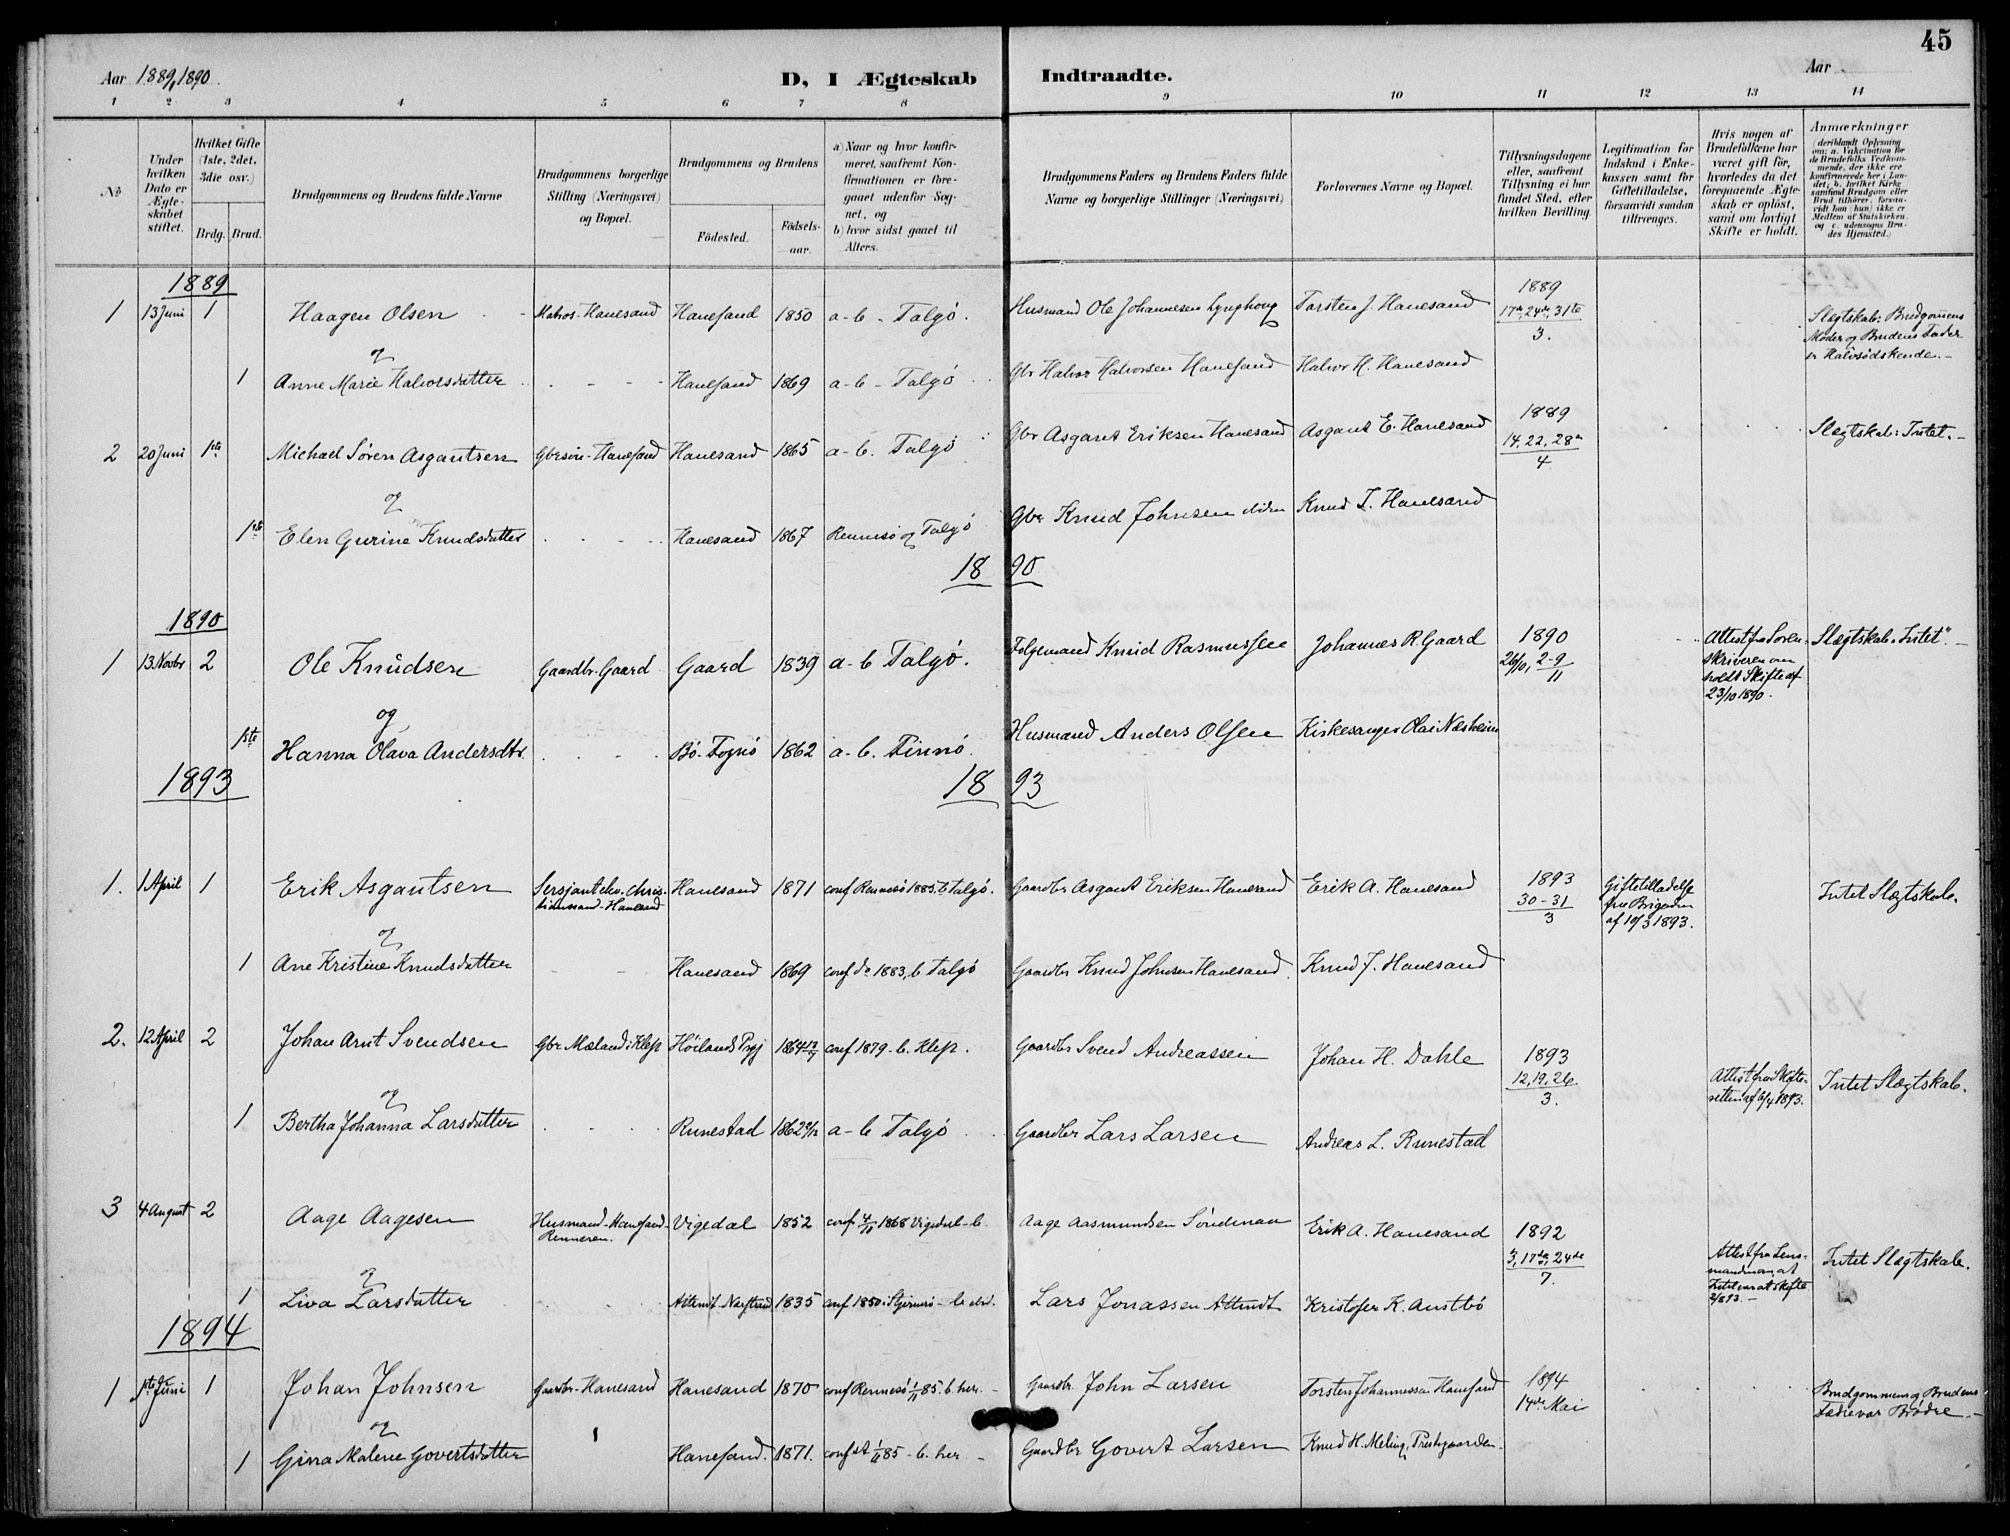 45
Aar 1889, 1890
D, I Ægteskab Indtraadte.
Aar
1 2 3 4 5 6 7 8 9 10 11 12 13 14
No
Under hvilken Dato er Ægteskabet stiftet.
Hvilket Gifte (1ste, 2det, 3die osv.)
Brdg. Brud.
Brudgommens og Brudens fulde Navne
Brudgommens borgerlige Stilling (Næringsvei) og Bopæl.
Brudgommens og Brudens
Födested. Födsels-aar.
a) Naar og hvor konfirmeret, saafremt Konfirmationen er foregaaet udenfor Sognet, og
b) hvor sidst gaaet til Alters.
Brudgommens Faders og Brudens Faders fulde Navne og borgerlige Stillinger (Næringsvei)
Forlovernes Navne og Bopæl.
Tillysningsdagene eller, saafremt Tillysning ei har fundet Sted, efter hvilken Bevilling.
Legitimation for Indskud i Enkekassen samt for Giftetilladelse, forsaavidt saadan tiltrænges.
Hvis nogen af Brudefolkene har været gift för, hvorledes da det foregaaende Ægteskab er oplöst, samt om lovligt Skifte er holdt.
Anmærkninger (deriblandt Oplysning om: a. Vakcination for de Brudefolks Vedkommende, der ikke ere konfirmerede her i Landet; b. hvilket Kirkesamfund Brudgom eller Brud tilhörer, forsaavidt han (hun) ikke er Medlem af Statskirken. og c. udensogns Brudes Hjemsted.)
1889
1 13 Juni 1 Haagen Olsen Matros - Hanesand Hanesand 1850 a-b - Talgø. Husmand Ole Johannesen Lynghoug Torsten J. Hanesand 1889 17de, 24de, 31te 3. Slegtskab: Brudgomens Moder og Brudens Fader er Halvsødskende. -
og
1 Anne Marie Halvorsdatter Hanesand 1869 a-b - Talgø Gbr Halvor Halvorsen Hanesand Halvor H. Hanesand
2 20 Juni 1ste Michael Søren Asgautsen Gbrsøn - Hanesand Hanesand 1865 a-b. Talgø Gbr Asgaut Eriksen Hanesand Asgaut E. Hanesand 1889 14, 22, 28de 4 Slegtskab: Intet. -
og
1ste Elen Gurine Knudsdatter Hanesand 1867 Rennesø og Talgø Gbr Knud Johnsen Knud J. Hanesand
18 90
1890
1 13. Novbr 2 Ole Knudsen Gaardbr. Gaard Gaard 1839 a-b Talgø. Folgemand Knud Rasmussen Johannes R Gaard 1890 26/10, 2-9 11 Attest fra Sorenskriveren om holdt Skifte af 23/10 1890. Slegtskab „Intet“. -
og
1ste Hanna Olava Andersdtr. Bø. Fognø 1862 a-b. Finnø. Husmand Anders Olsen Kirkesanger Olai Næsheim
1893 18 93
1. 1 April 1 Erik Asgautsen Sersjantelev. Christiansand - Hanesand Hanesand 1871 conf Rennesø 1885. b Talgø. Gaardbr Asgaut Eriksen Hanesand Erik A. Hanesand 1893 30-31 3 Giftetilladelse fra Brigaden af 10/3 1893. Intet Slegtskab.
og
1 Ane Kristine Knudsdatter Hanesand 1869 conf do 1883, b Talgø Gaardbr Knud Johnsen Hanesand. Knud J. Hanesand
2. 12 April 2 Johan Arnt Svendsen Gbr Mæland i Klep Høilands Prgj 1864 conf 1879 - b. Klep. Gaardbr Svend Andreassen Johan H. Dahle 1893 12, 19, 26 3. Attest fra Skifteretten af 6/4 1893. Intet Slegtskab.
og
1 Bertha Johanna Larsdatter Runestad 1862 a-b Talgø Gaardbr Lars Larsen Andreas L. Runestad
3 4 August 2 Aage Aagesen Husmand - Hanesand - Renneren. Vigedal 1852 conf 1868 Vigedal - b. Aage Aasmundsen Søndenaa Erik A. Hanesand 1892 3, 17de, 24de 7. Attest fra Lensmanden, at Intet var at skifte 2/8 93. - Intet Slegtskab.
og
1 Liva Larsdatter Nerstrand 1835 conf 1850 i Sjernerø - b. Lars Jonassen Kristofer K. Austbø
1894
1 1ste Juni 1 Johan Johnsen Gaardbr. Hanesand Hanesand 1870 conf Rennesø 85. b. her. - Gaardbr. John Larsen Torsten Johannessen Hanesand 1894 14de Mai Brudgommens og Brudens Fædre var Brødre. -
og
1 Gina Malene Govertsdatter Hanesand. 1871. conf 85 - b. her. - Gaardbr Govert Larsen Knud H. Meling, Prestgaarden.